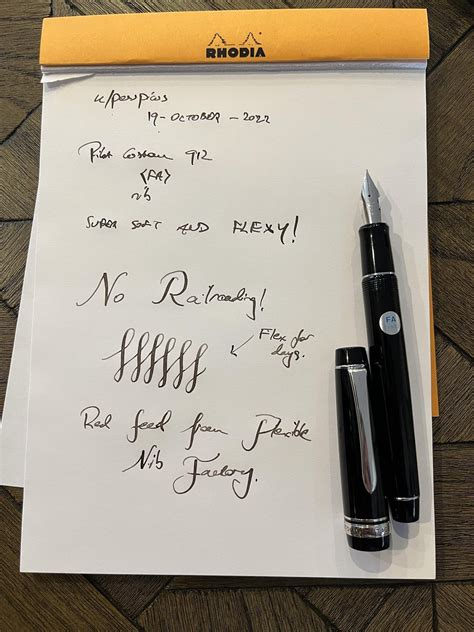 RHODIA
19-OCTOBER-2022
Pilot Custom 912
<FA>
nib
SUPER SOFT AND FLEXY!
No Railroading!
Flex for
days.
Red feed from Flexible
Nib Factory.
FA